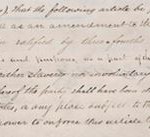 ) That the following article be
as an amendment to the
ratified by three-fourths
and purposes, as a part of
neither slavery nor involuntary
whereof the party shall have been
States, or any place subject to the
power to enforce this article